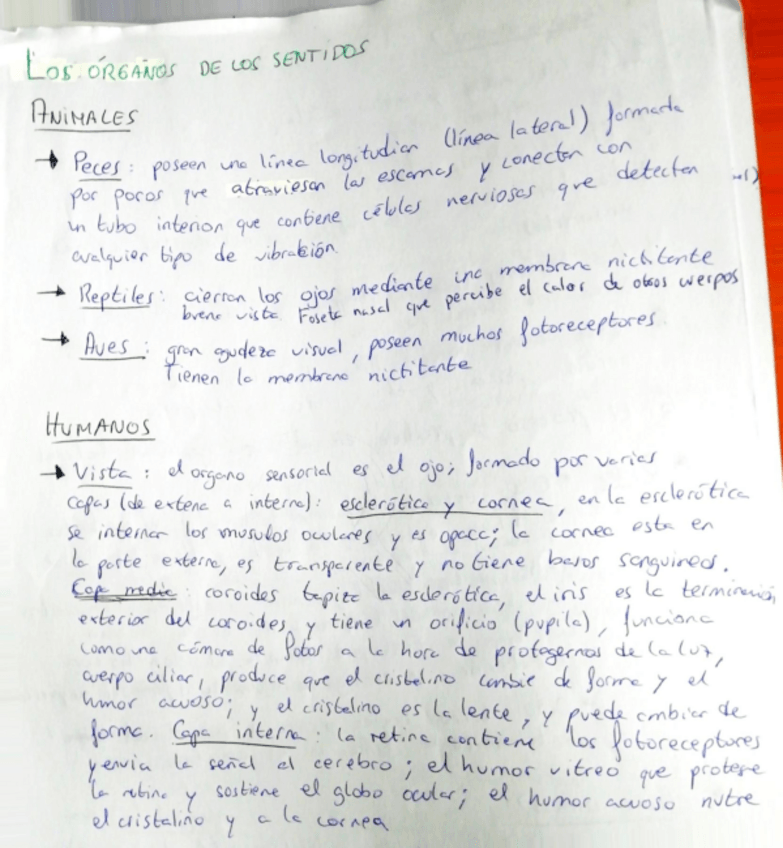 LOS ÓRGANOS DE LOS SENTIDOS
ANIMALES
→ Peces: poseen una línea longitudian (línea lateral) formada
por poros que atraviesan las escamas y conectan con
un tubo interior que contiene células nerviosas que detectan
cualquier tipo de vibración.
→ Reptiles: cierran los ojos mediante una membrana nictitante
buena vista Foseta nasal que percibe el calor de otros cuerpos
→ Aves: gran agudeza visual, poseen muchos fotoreceptores.
Tienen la membrana nictitante
HUMANOS
→ Vista: el organo sensorial es el ojo; formado por varias
capas (de extena a interna): esclerótica y cornea, en la esclerótica
se internan los musulos oculares y es opaca; la cornea esta en
la parte externa, es transparente y no tiene basos sanguineos.
Capa media: coroides tapiza la esclerótica, el iris es la terminación
exterior del coroides y tiene un orificio (pupila), funciona
como una cámara de fotos a la hora de protegernos de la luz,
cuerpo ciliar, produce que el cristalino cambie de forma y el
humor acuoso; y el cristalino es la lente, y puede cambiar de
forma. Capa interna: la retina contiene los fotoreceptores
y envia la señal al cerebro; el humor vitreo que protege
la retina y sostiene el globo ocular; el humor acuoso nutre
el cristalino y a la cornea